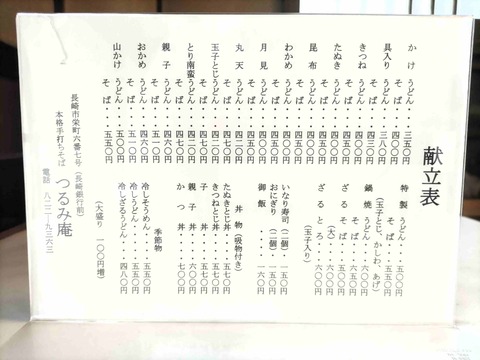 献立表
かけ うどん・・・三五〇円
そば・・・四〇〇円
具入り うどん・・・三八〇円
そば・・・四三〇円
きつね うどん・・・四二〇円
そば・・・四七〇円
たぬき うどん・・・四二〇円
そば・・・四七〇円
昆布 うどん・・・四二〇円
そば・・・四七〇円
わかめ うどん・・・四二〇円
そば・・・四七〇円
月見 うどん・・・四二〇円
そば・・・四七〇円
丸天 うどん・・・四二〇円
そば・・・四七〇円
玉子とじ うどん・・・四二〇円
そば・・・四七〇円
とり南蛮 うどん・・・四六〇円
そば・・・五一〇円
親子 うどん・・・四六〇円
そば・・・五一〇円
おかめ うどん・・・四六〇円
そば・・・五一〇円
山かけ うどん・・・五〇〇円
そば・・・五五〇円
特製 うどん・・・五〇〇円
そば・・・五五〇円
(玉子とじ、かしわ、あげ)
鍋焼うどん・・・六〇〇円
ざるそば・・・五〇〇円
(大)・・・六五〇円
ざるとろ・・・六〇〇円
(玉子入り)
いなり寿司(二個)・一五〇円
おにぎり(二個)・一五〇円
御飯・・・・一六〇円
丼物(吸物付き)
たぬきとじ丼・・五七〇円
きつねとじ丼・・五七〇円
子丼・・・五七〇円
親子丼・・・六二〇円
かつ丼・・・七〇〇円
季節物
冷しそうめん・・五五〇円
冷しうどん・・・五五〇円
冷しざるうどん・四八〇円
(大盛り 一〇〇円増)
長崎市栄町六番七号(長崎銀行前)
本格手打ちそば つるみ庵
電話 八二二-九三六三